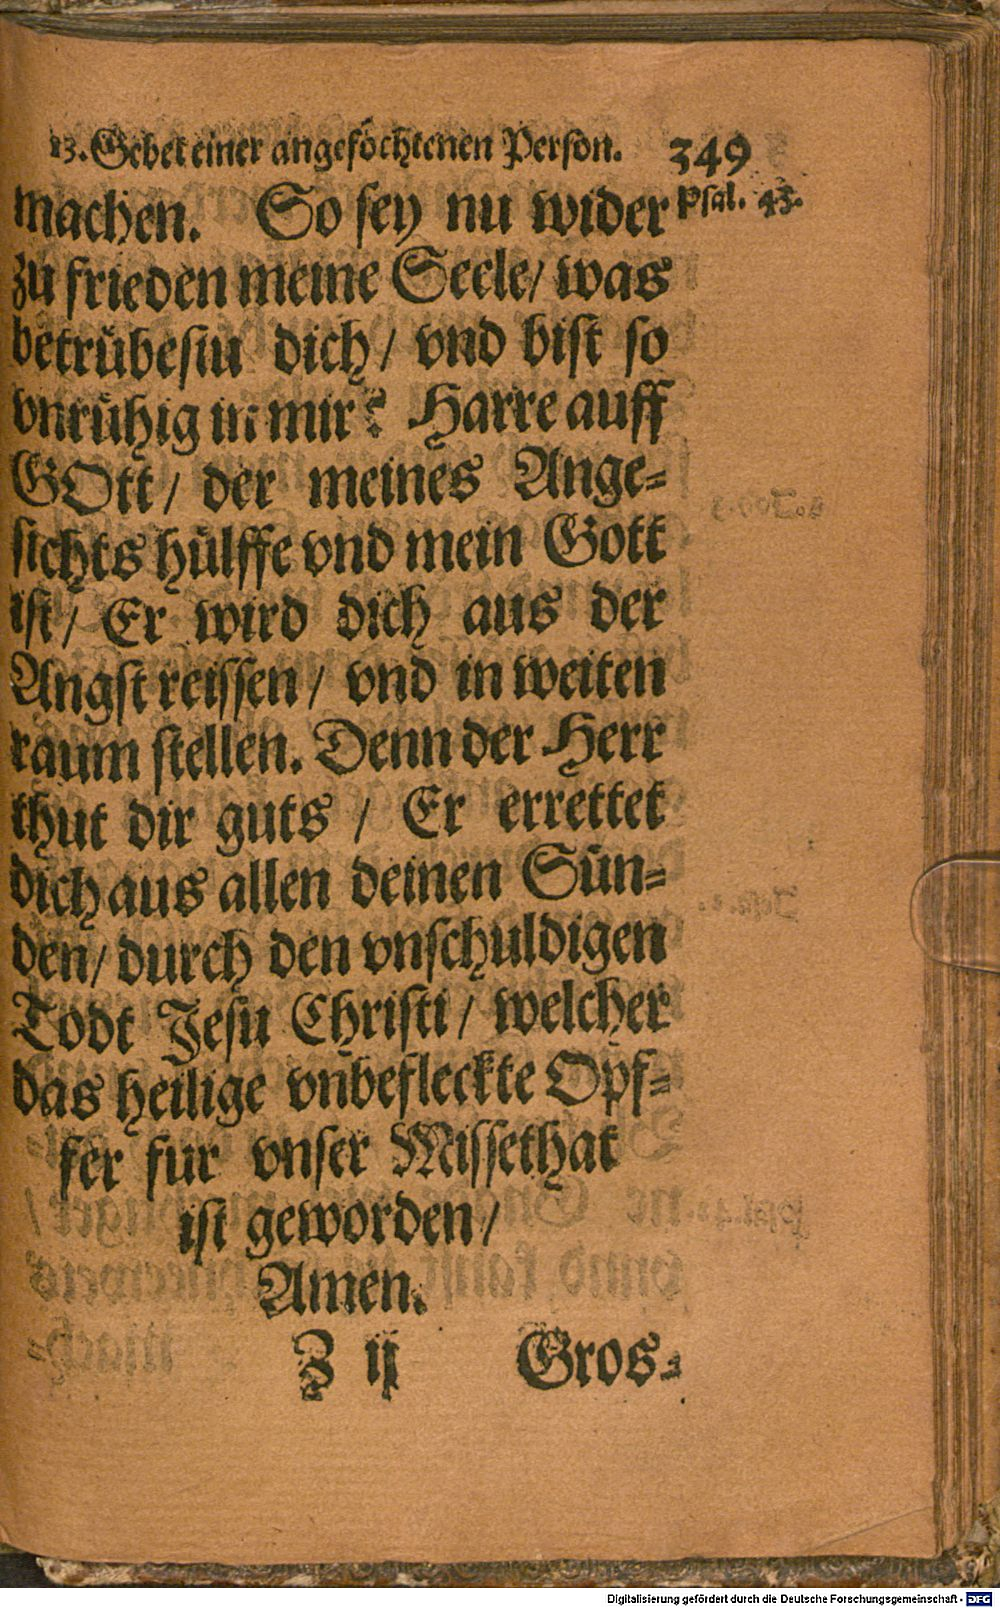 23. Gebet einer angefochtenen Person. 349
machen. So sey nu wider Psal. 43.
zu frieden meine Seele/ was
betrübestu dich/ vnd bist so
vnrühig in mir? Harre auff
GOtt/ der meines Ange-
sichts hülffe vnd mein Gott
ist/ Er wird dich aus der
Angst reissen/ vnd in weiten
raum stellen. Denn der Herr
thut dir guts / Er errettet
dich aus allen deinen Sün-
den/ durch den vnschuldigen
Todt Jesu Christi/ welcher
das heilige vnbefleckte Opf-
fer fur vnser Missethat
ist geworden/
Amen.
Z ij Gros-
Digitalisierung gefördert durch die Deutsche Forschungsgemeinschaft - DFG